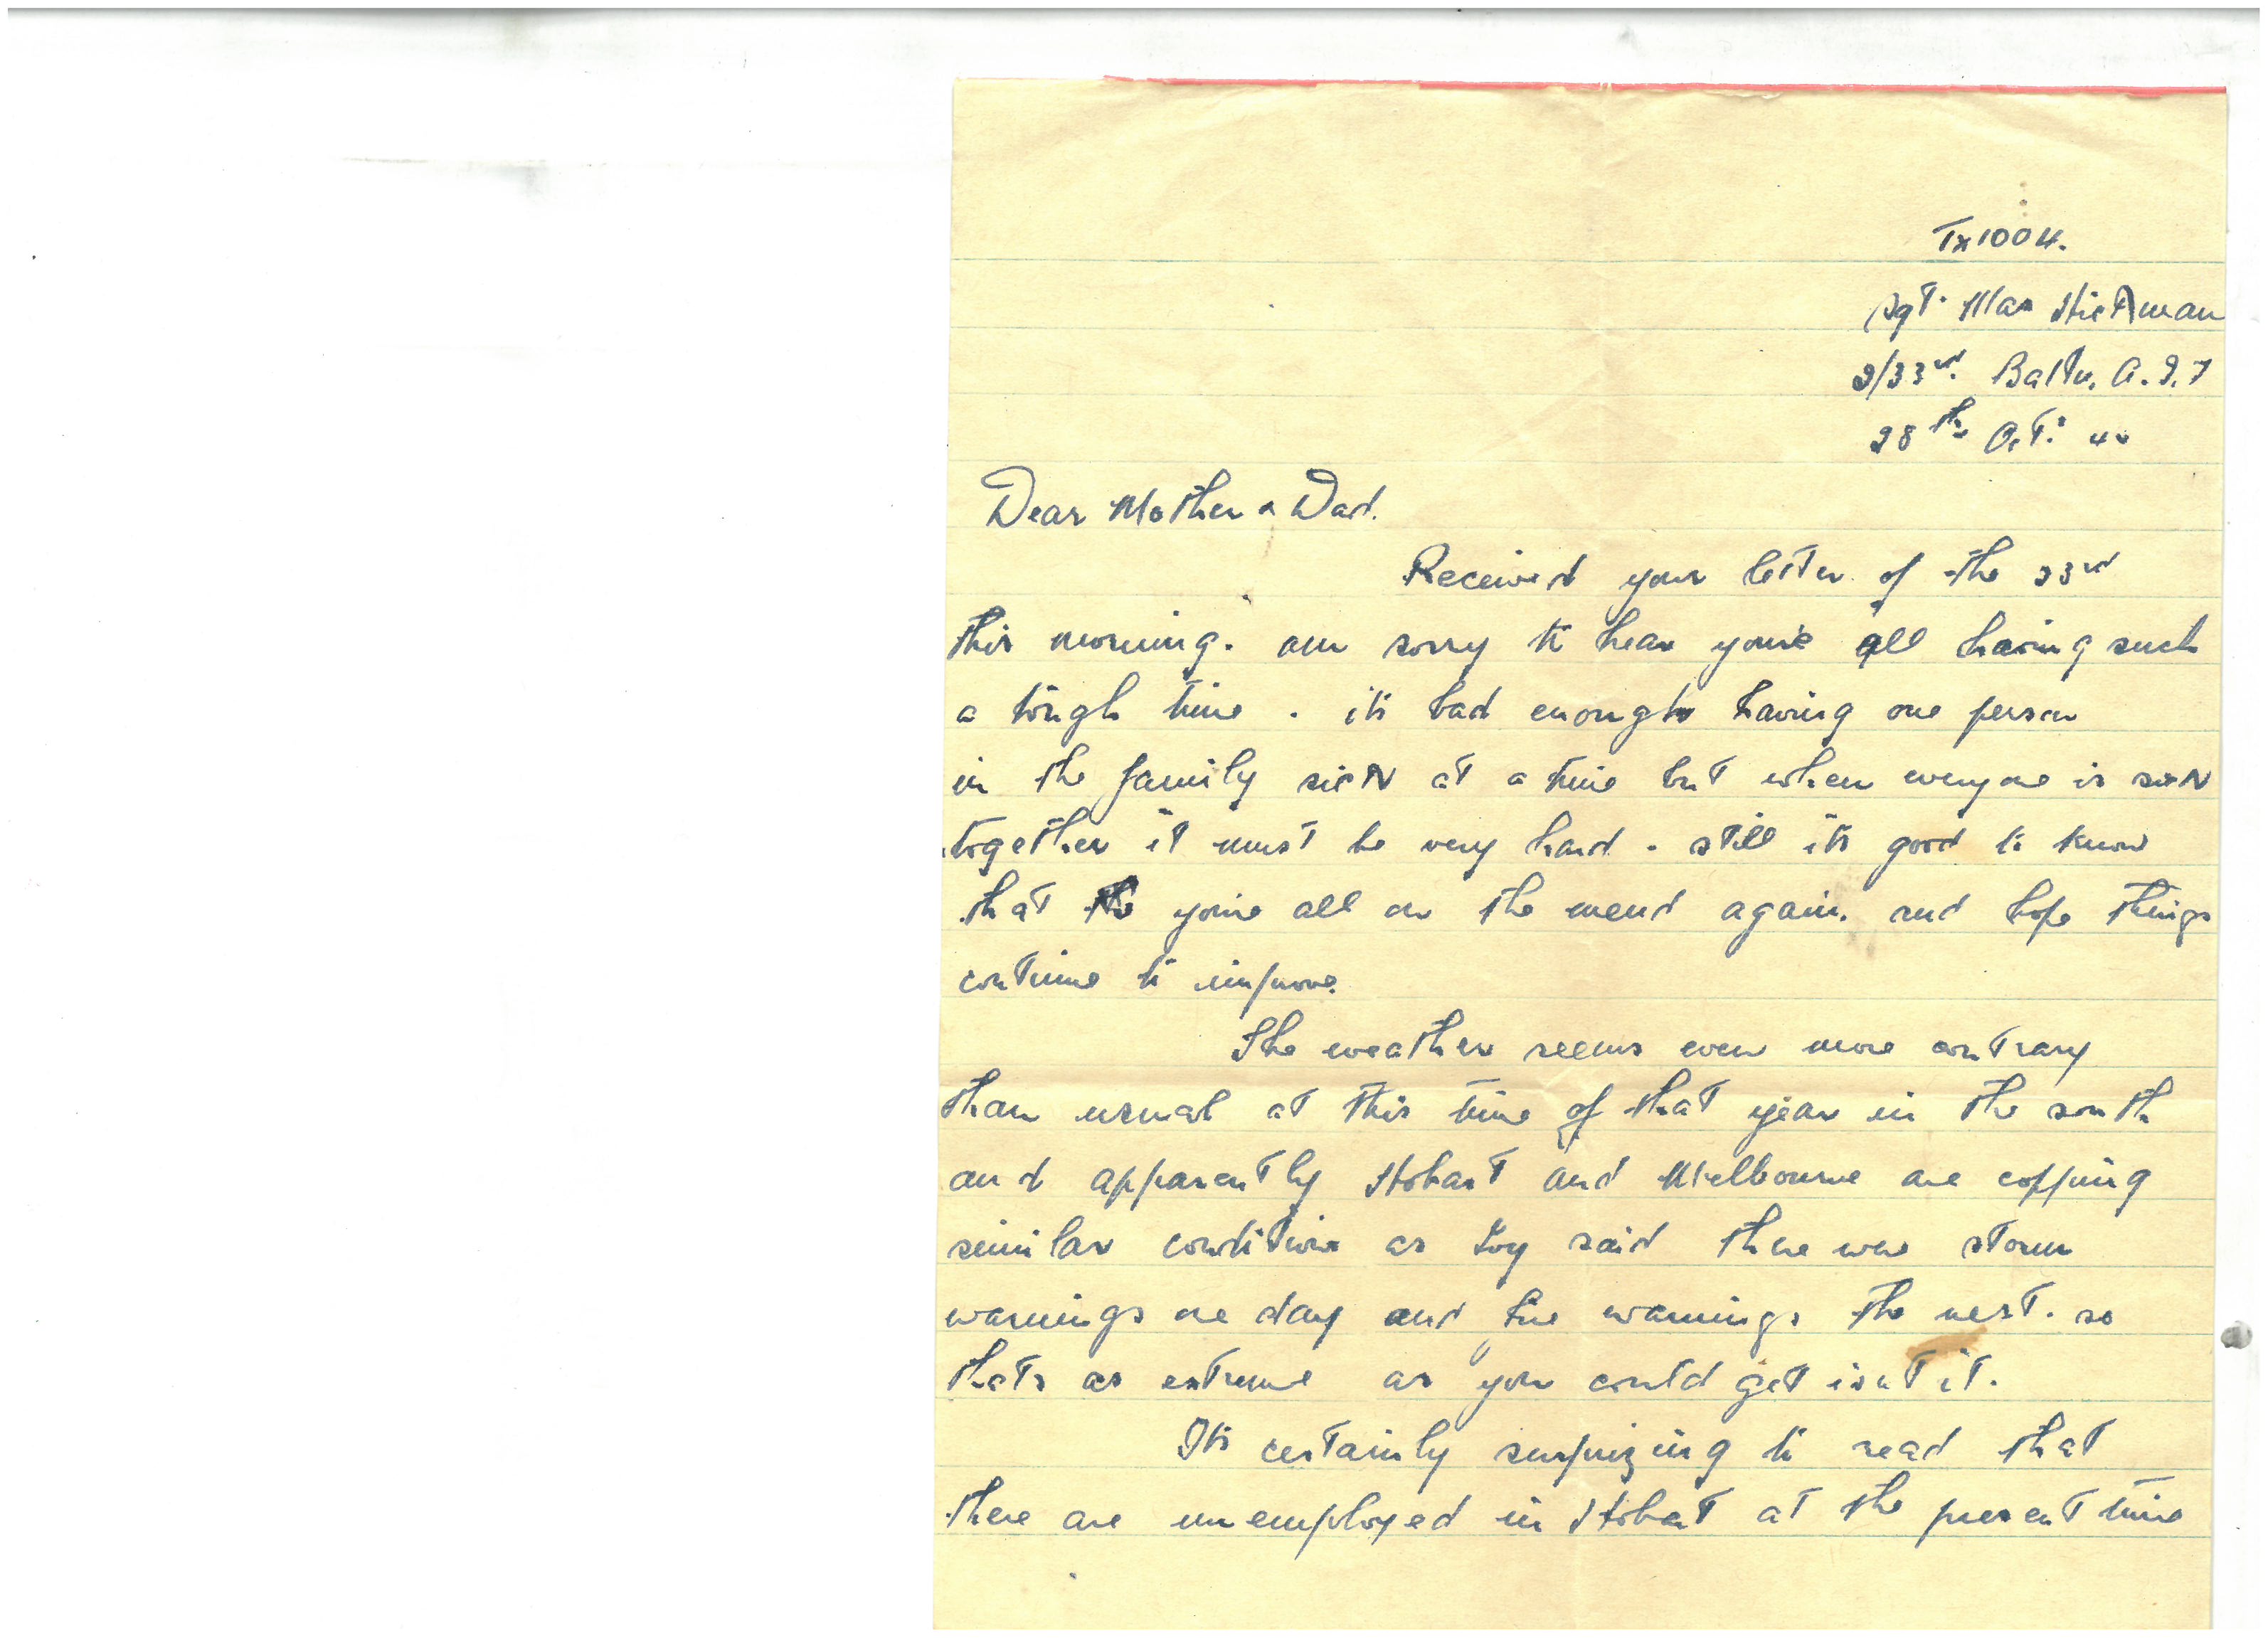 Tx1004.
Sgt. Max Hickman
2/33rd. Battn. A.I.F
28th Oct:
Dear Mother & Dad.
Received your letter of the 23rd
this morning. am sorry to hear you're all having such
a tough time. its bad enough having one person
in the family sick at a time but when everyone is sick
together it must be very hard. still its good to know
that you're all on the mend again. and hope things
continue to improve.
The weather seems even more contrary
than usual at this time of that year in the south
and apparently Hobart and Melbourne are copping
similar conditions as said there were storm
warnings one day and fire warnings the next. so
thats as extreme as you could get isnt it.
Its certainly surprizing to read that
there are unemployed in Hobart at the present time